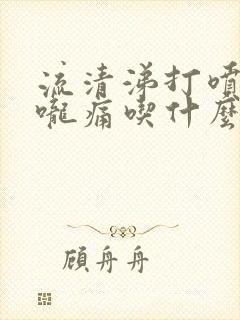 流清涕打噴
嚨痛喫什麼
顧舟舟